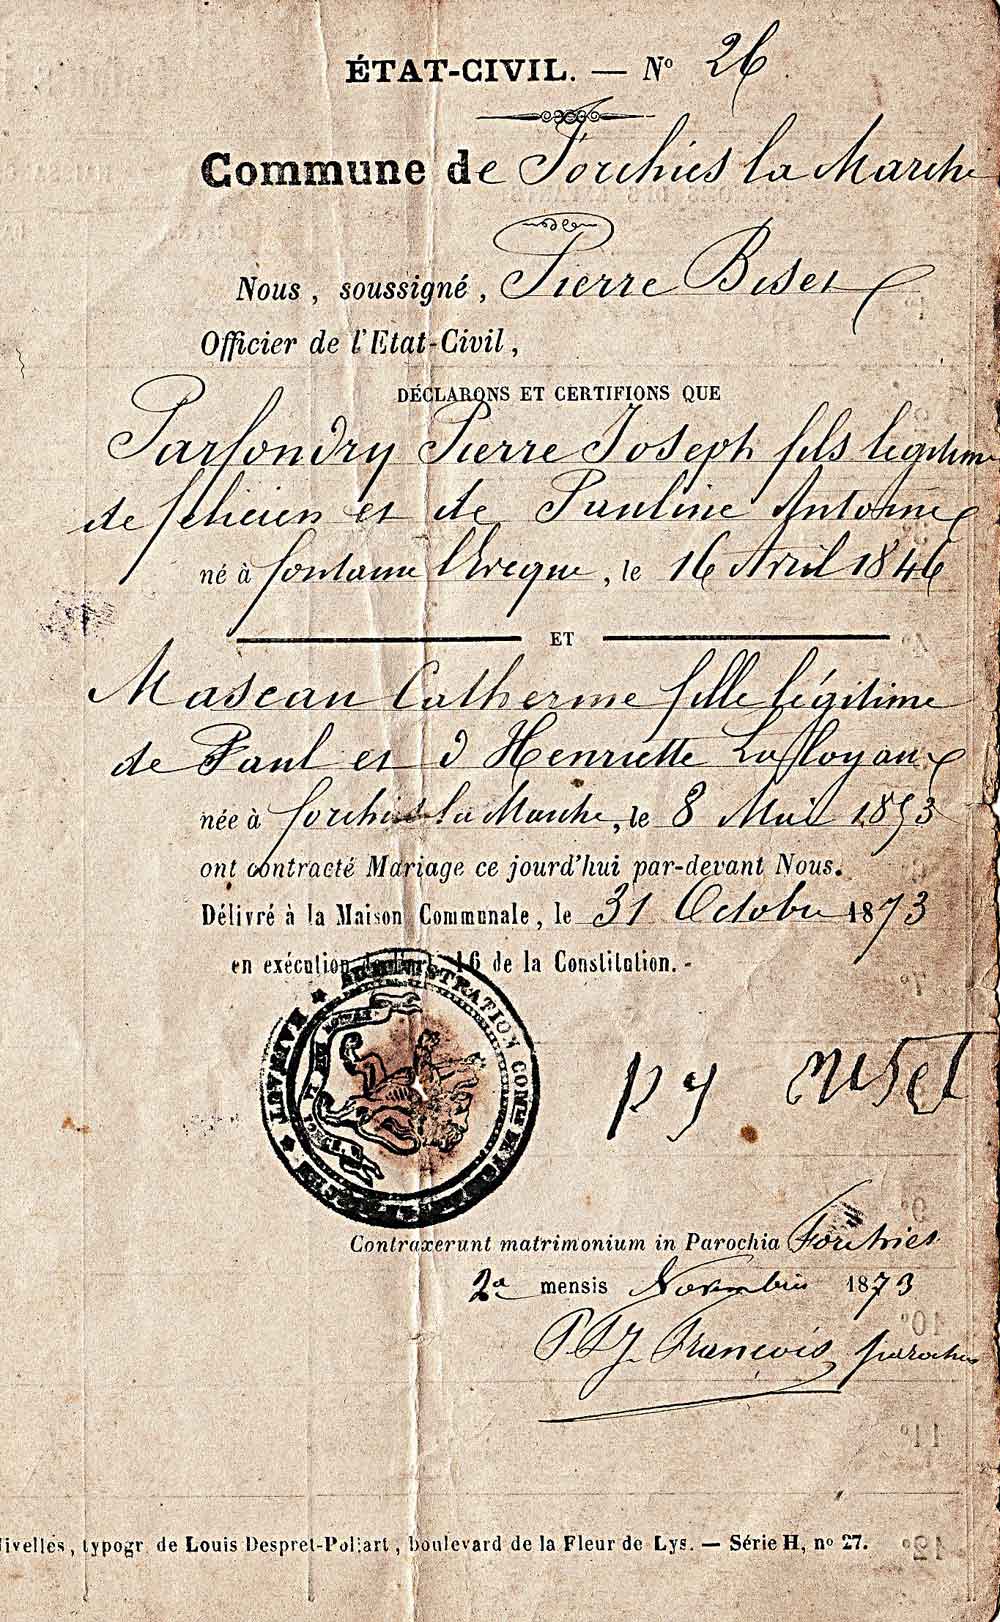 ÉTAT-CIVIL. — N° 26
Commune de Forchies la Marche
Nous, soussigné, Pierre Biset
Officier de l'Etat-Civil,
DÉCLARONS ET CERTIFIONS QUE
Parfondry Pierre Joseph fils légitime
de félicien et de Pauline Antoine
né à fontaine l'Eveque, le 16 Avril 1846
ET
Mascau Catherine fille légitime
de Paul et d Henriette Lafloyaux
née à forchies la Marche, le 8 Mai 1853
ont contracté Mariage ce jourd'hui par-devant Nous.
Délivré à la Maison Communale, le 31 Octobre 1873
en exécution de l'art. 16 de la Constitution.
ADMINISTRATION COMLE HAINAUT
L'UNION FAIT LA FORCE
Contraxerunt matrimonium in Parochia Forchies
2a mensis Novembris 1873
François parochus
Nivelles, typogr. de Louis Despret-Poliart, boulevard de la Fleur de Lys. — Série H, n° 27.